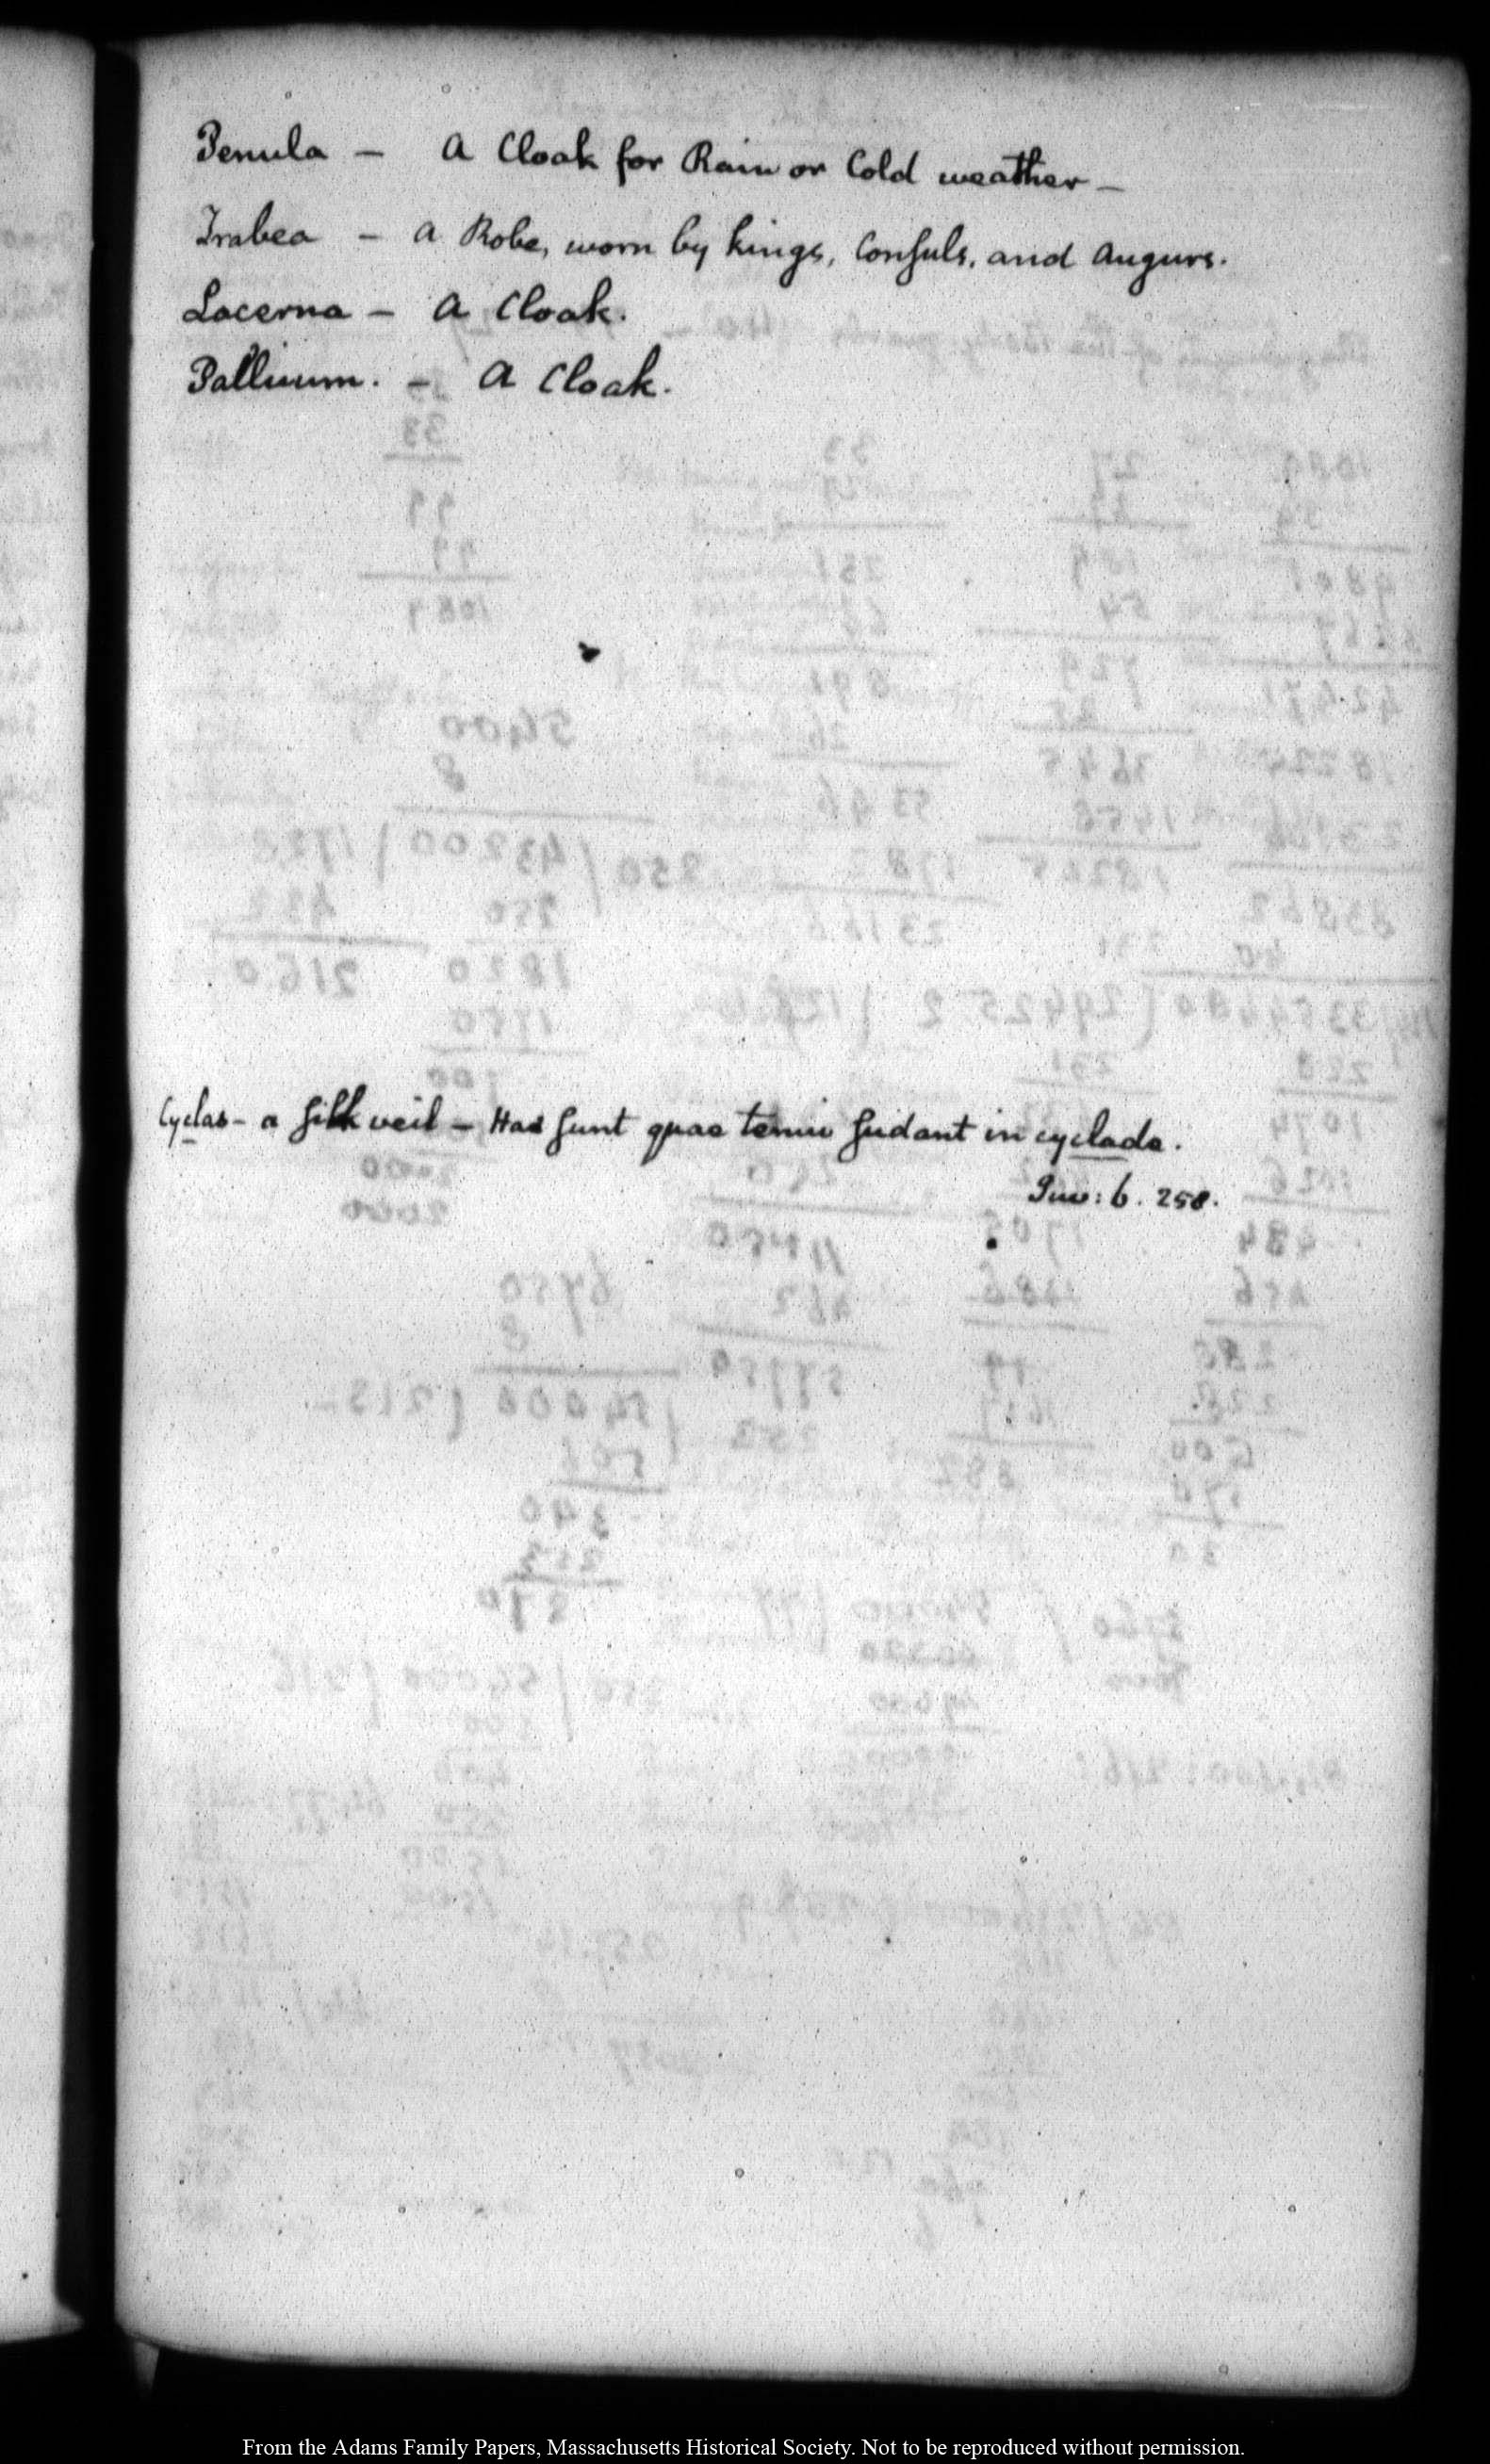 Penula – A Cloak for Rain or Cold weather –
Trabea – A Robe, worn by kings, Consuls, and Augurs.
Lacerna – A Cloak.
Pallium. – A Cloak.
Cyclas – a silk veil – Hae sunt quae tenui sudant in cyclade.
Juv: 6. 258.
From the Adams Family Papers, Massachusetts Historical Society. Not to be reproduced without permission.